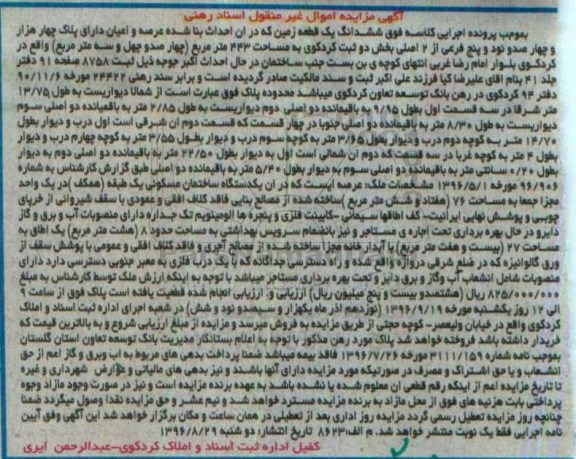 آگهی مزایده اموال غیر منقول اسناد رهنی
بموجب پرونده اجرایی کلاسه فوق ششدانگ یک قطعه زمین که در ان احداث بنا شده عرصه و اعیان دارای پلاک چهار هزار
و چهار صدو نود و پنج فرعی از ۲ اصلی بخش دو ثبت کردکوی به مساحت ۴۴۳ متر مربع (چهار صدو چهل و سه متر مربع) واقع در
کردکوی بلوار امام رضا غربی انتهای کوچه ی بن بست جنب ساختمان در حال احداث اکبر جوجه ذیل ثبت ۸۷۵۸ صفحه ۹۱ دفتر
جلد ۴۱ بنام اقای علیرضا کیا فرزند علی اکبر ثبت و سند مالکیت صادر گردیده است و برابر سند رهنی ۲۴۴۲۲ مورخه ۹۰/۱۱/۶
دفتر ۹۴ کردکوی در رهن بانک توسعه تعاون کردکوی میباشد محدوده پلاک فوق عبارت است از شمالا دیواریست به طول ۱۳/۷۵
متر شرقا در سه قسمت اول بطول ۹/۹۵ به باقیمانده دو اصلی دوم دیواریست به طول ۲/۸۵ متر به باقمیانده دو اصلی سوم
دیواریست به طول ۸/۳۰ متر به باقیمانده دو اصلی جنوبا در چهار قسمت که قسمت دوم ان شرقی است اول درب و دیوار بطول
۱۴/۷۰ متر به کوچه دوم درب و دیوار بطول ۳/۶۵ متر به کوچه سوم درب و دیوار بطول ۳/۵۵ متر به کوچه چهارم درب و دیوار
بطول ۴ متر به کوچه غربا در سه قسمت که دوم ان شمالی است اول به دیوار بطول ۲۲/۵۰ متر به باقیمانده دو اصلی دوم به دیوار
بطول ۰/۲۰ سانتی متر به باقیمانده دو اصلی سوم به دیوار بطول ۵/۴۰ متر به باقیمانده دو اصلی طبق گزارش کارشناس به شماره
۹۶/۹۰۶ مورخه ۱۳۹۶/۵/۱ مشخصات ملک: عرصه ایست که در ان یکدستگاه ساختمان مسکونی یک طبقه (همکف) در یک واحد
مجزا جمعا به مساحت ۷۶ (هفتاد و شش متر مربع) ساخته شده از مصالح بنایی فاقد کلاف افقی و عمودی با سقف شیروانی از خرپای
چوبی و پوشش نهایی ایرانیت- کف اطاقها سیمانی -کابینت فلزی و پنجره ها الومینیوم تک جداره دارای منصوبات آب و برق و گاز
دایرو در حال بهره برداری تحت اجاره ی مستاجر و نیز بانضمام سرویس بهداشتی به مساحت حدود ۸ (هشت متر مربع) یک اطاق به
مساحت ۲۷ (بیست و هفت متر مربع) با آبدار خانه مجزا ساخته شده از مصالح آجری و فاقد کلاف افقی و عمومی با پوشش سقف از
ورق گالوانیزه که در ضلع شرقی دروازه واقع شده و راه دسترسی جداگانه که با یک درب فلزی به معبر جنوبی دسترسی دارد دارای
منصوبات شامل انشعاب آب وگاز و برق دایر و تحت بهره برداری مستاجر میباشد با توجه به اینکه ارزش ملک توسط کارشناس به مبلغ
۸۲۵/۰۰۰/۰۰۰ ریال (هشتصدو بیست و پنج میلیون ریال) ارزیابی و. ارزیابی انجام شده قطعیت یافته است پلاک فوق از ساعت ۹
الی ۱۲ روز یکشنبه مورخه ۱۳۹۶/۹/۱۹ (نوزدهم آذر ماه یکهزار و سیصدو نود و شش) در شعبه اجرای اداره ثبت اسناد و املاک
کردکوی واقع در خیابان ولیعصر- کوچه حجتی از طریق مزایده به فروش میرسد و مزایده از مبلغ ارزیابی شروع و به بالاترین قیمت که
خریدار داشته باشد فروخته خواهد شد پلاک مورد رهن مذکور با توجه به اعلام بستانکار مدیریت بانک توسعه تعاون استان گلستان
بموجب نامه شماره ۳۱۱۱/۱۵۹ مورخه ۱۳۹۶/۷/۲۶ فاقد بیمه میباشد ضمنا پرداخت بدهی های مربوط به اب وبرق و گاز اعم از حق
انشعاب و یا حق اشتراک و مصرف در صورتیکه مورد مزایده دارای آنها باشند و نیز بدهی های مالیاتی و عوارض شهرداری و غیره
تا تاریخ مزایده اعم از اینکه رقم قطعی ان معلوم شده یا نشده باشد به عهده برنده مزایده است و نیز در صورت وجود مازاد وجوه
پرداختی بابت هزینه های فوق از محل مازاد به برنده مزایده مسترد خواهد شد و نیم عشر و حق مزایده نقدا وصول میگردد ضمنا
چنانچه روز مزایده تعطیل رسمی گردد مزایده روز اداری بعد از تعطیلی در همان ساعت و مکان برگزار خواهد شد این آگهی وفق آیین
نامه اجرایی فقط یک نوبت منتشر خواهد شد. م الف:۸۶۲۳ تاریخ انتشار: دو شنبه ۱۳۹۶/۸/۲۹
کفیل اداره ثبت اسناد و املاک کردکوی-عبدالرحمن آیری